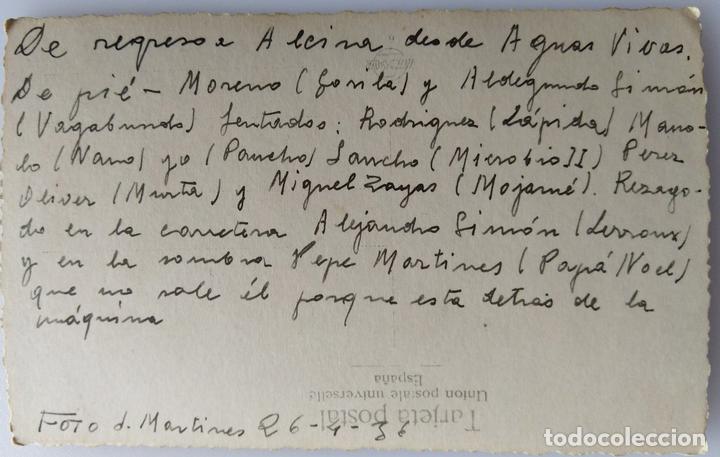 De regreso a Alcira desde Aguas Vivas.
De pié - Moreno (Gorila) y Aldegundo Simón
(Vagabundo) Sentados: Rodriguez (Lápida) Mano-
lo (Nano) yo (Pancho) Sancho (Microbio II) Perez
Oliver (Murta) y Miguel Zayas (Mojamé). Rezaga-
do en la carretera Alejandro Simón (Lerroux)
y en la sombra Pepe Martines (Papá Noel)
que no sale él porque esta detrás de la
máquina
España
Union postale universelle
Tarjeta postal
Foto d. Martines 26-4-36
todocoleccion